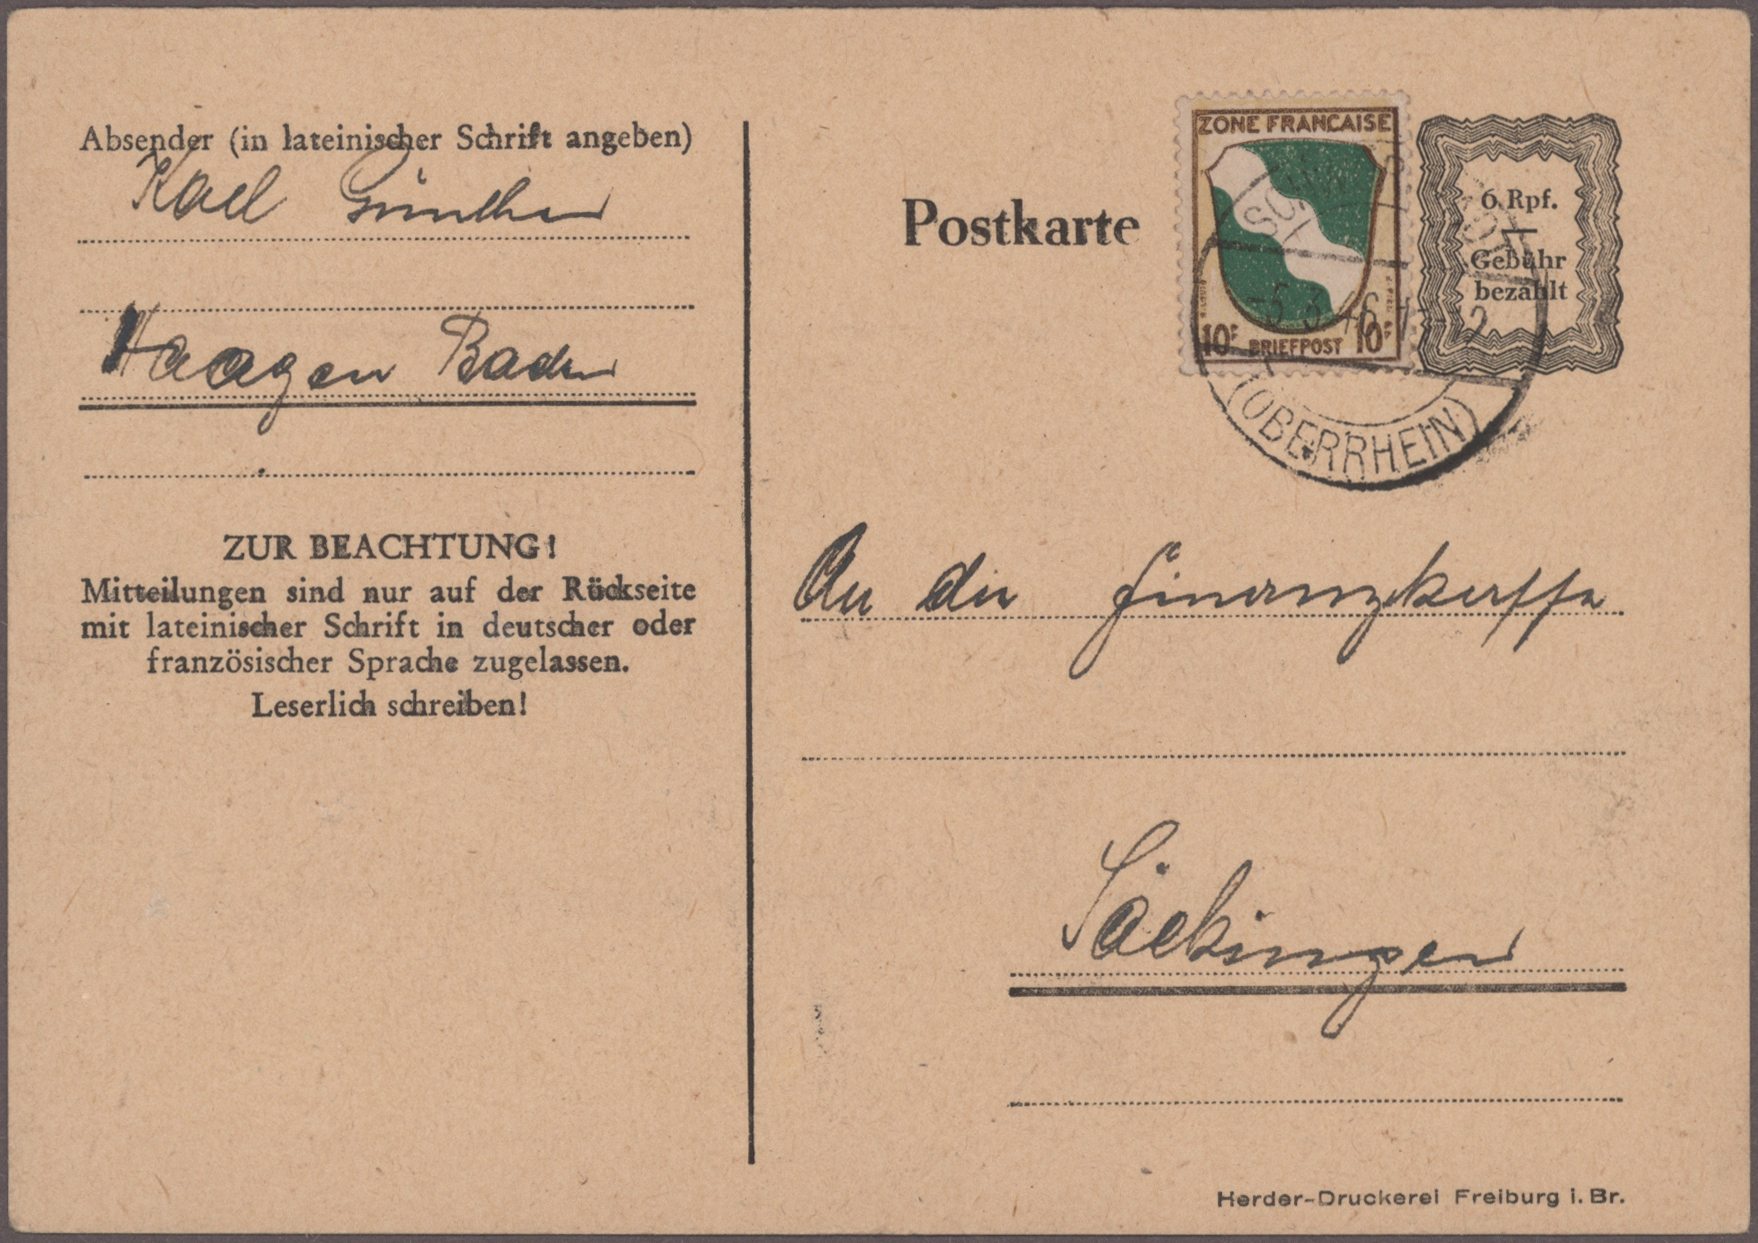 Absender (in lateinischer Schrift angeben)
Karl Günther
Haagen Baden
ZUR BEACHTUNG!
Mitteilungen sind nur auf der Rückseite
mit lateinischer Schrift in deutscher oder
französischer Sprache zugelassen.
Leserlich schreiben!
Postkarte
ZONE FRANCAISE
10F BRIEFPOST 10F
6 Rpf.
Gebühr
bezahlt
-5.3.46
(OBERRHEIN)
An die Finanzkasse
Säckingen
Herder-Druckerei Freiburg i. Br.